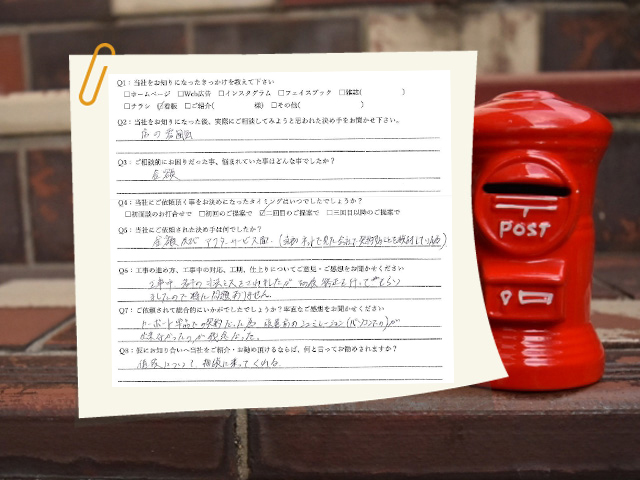 Q1：当社をお知りになったきっかけを教えて下さい
□ホームページ □Web広告 □インスタグラム □フェイスブック □雑誌( )
□チラシ ☑看板 □ご紹介( 様) □その他( )
Q2：当社をお知りになった後、実際にご相談してみようと思われた決め手をお聞かせ下さい。
店の雰囲気
Q3：ご相談前にお困りだった事、悩まれていた事はどんな事でしたか？
金額
Q4：当社にご依頼頂く事をお決めになったタイミングはいつでしたでしょうか？
□初面談のお打合せで □初回のご提案で ☑二回目のご提案で □三回目以降のご提案で
Q5：当社にご依頼された決め手は何でしたか？
金額 アフターサービス面
Q6：工事の進め方、工事中の対応、工期、仕上りについてご意見・ご感想をお聞かせください
工事中 都度 行ってもらい
ましたので 特に問題ありません。
Q7：ご依頼されて総合的にいかがでしたでしょうか？率直なご感想をお聞かせください
カーポート単品での契約だった為 シュミレーション(パソコンでの)が
出来なかったのが残念だった。
Q8：仮にお知り合いへ当社をご紹介・お勧め頂けるならば、何と言ってお勧めされますか？
について 相談に乗ってくれる
POST